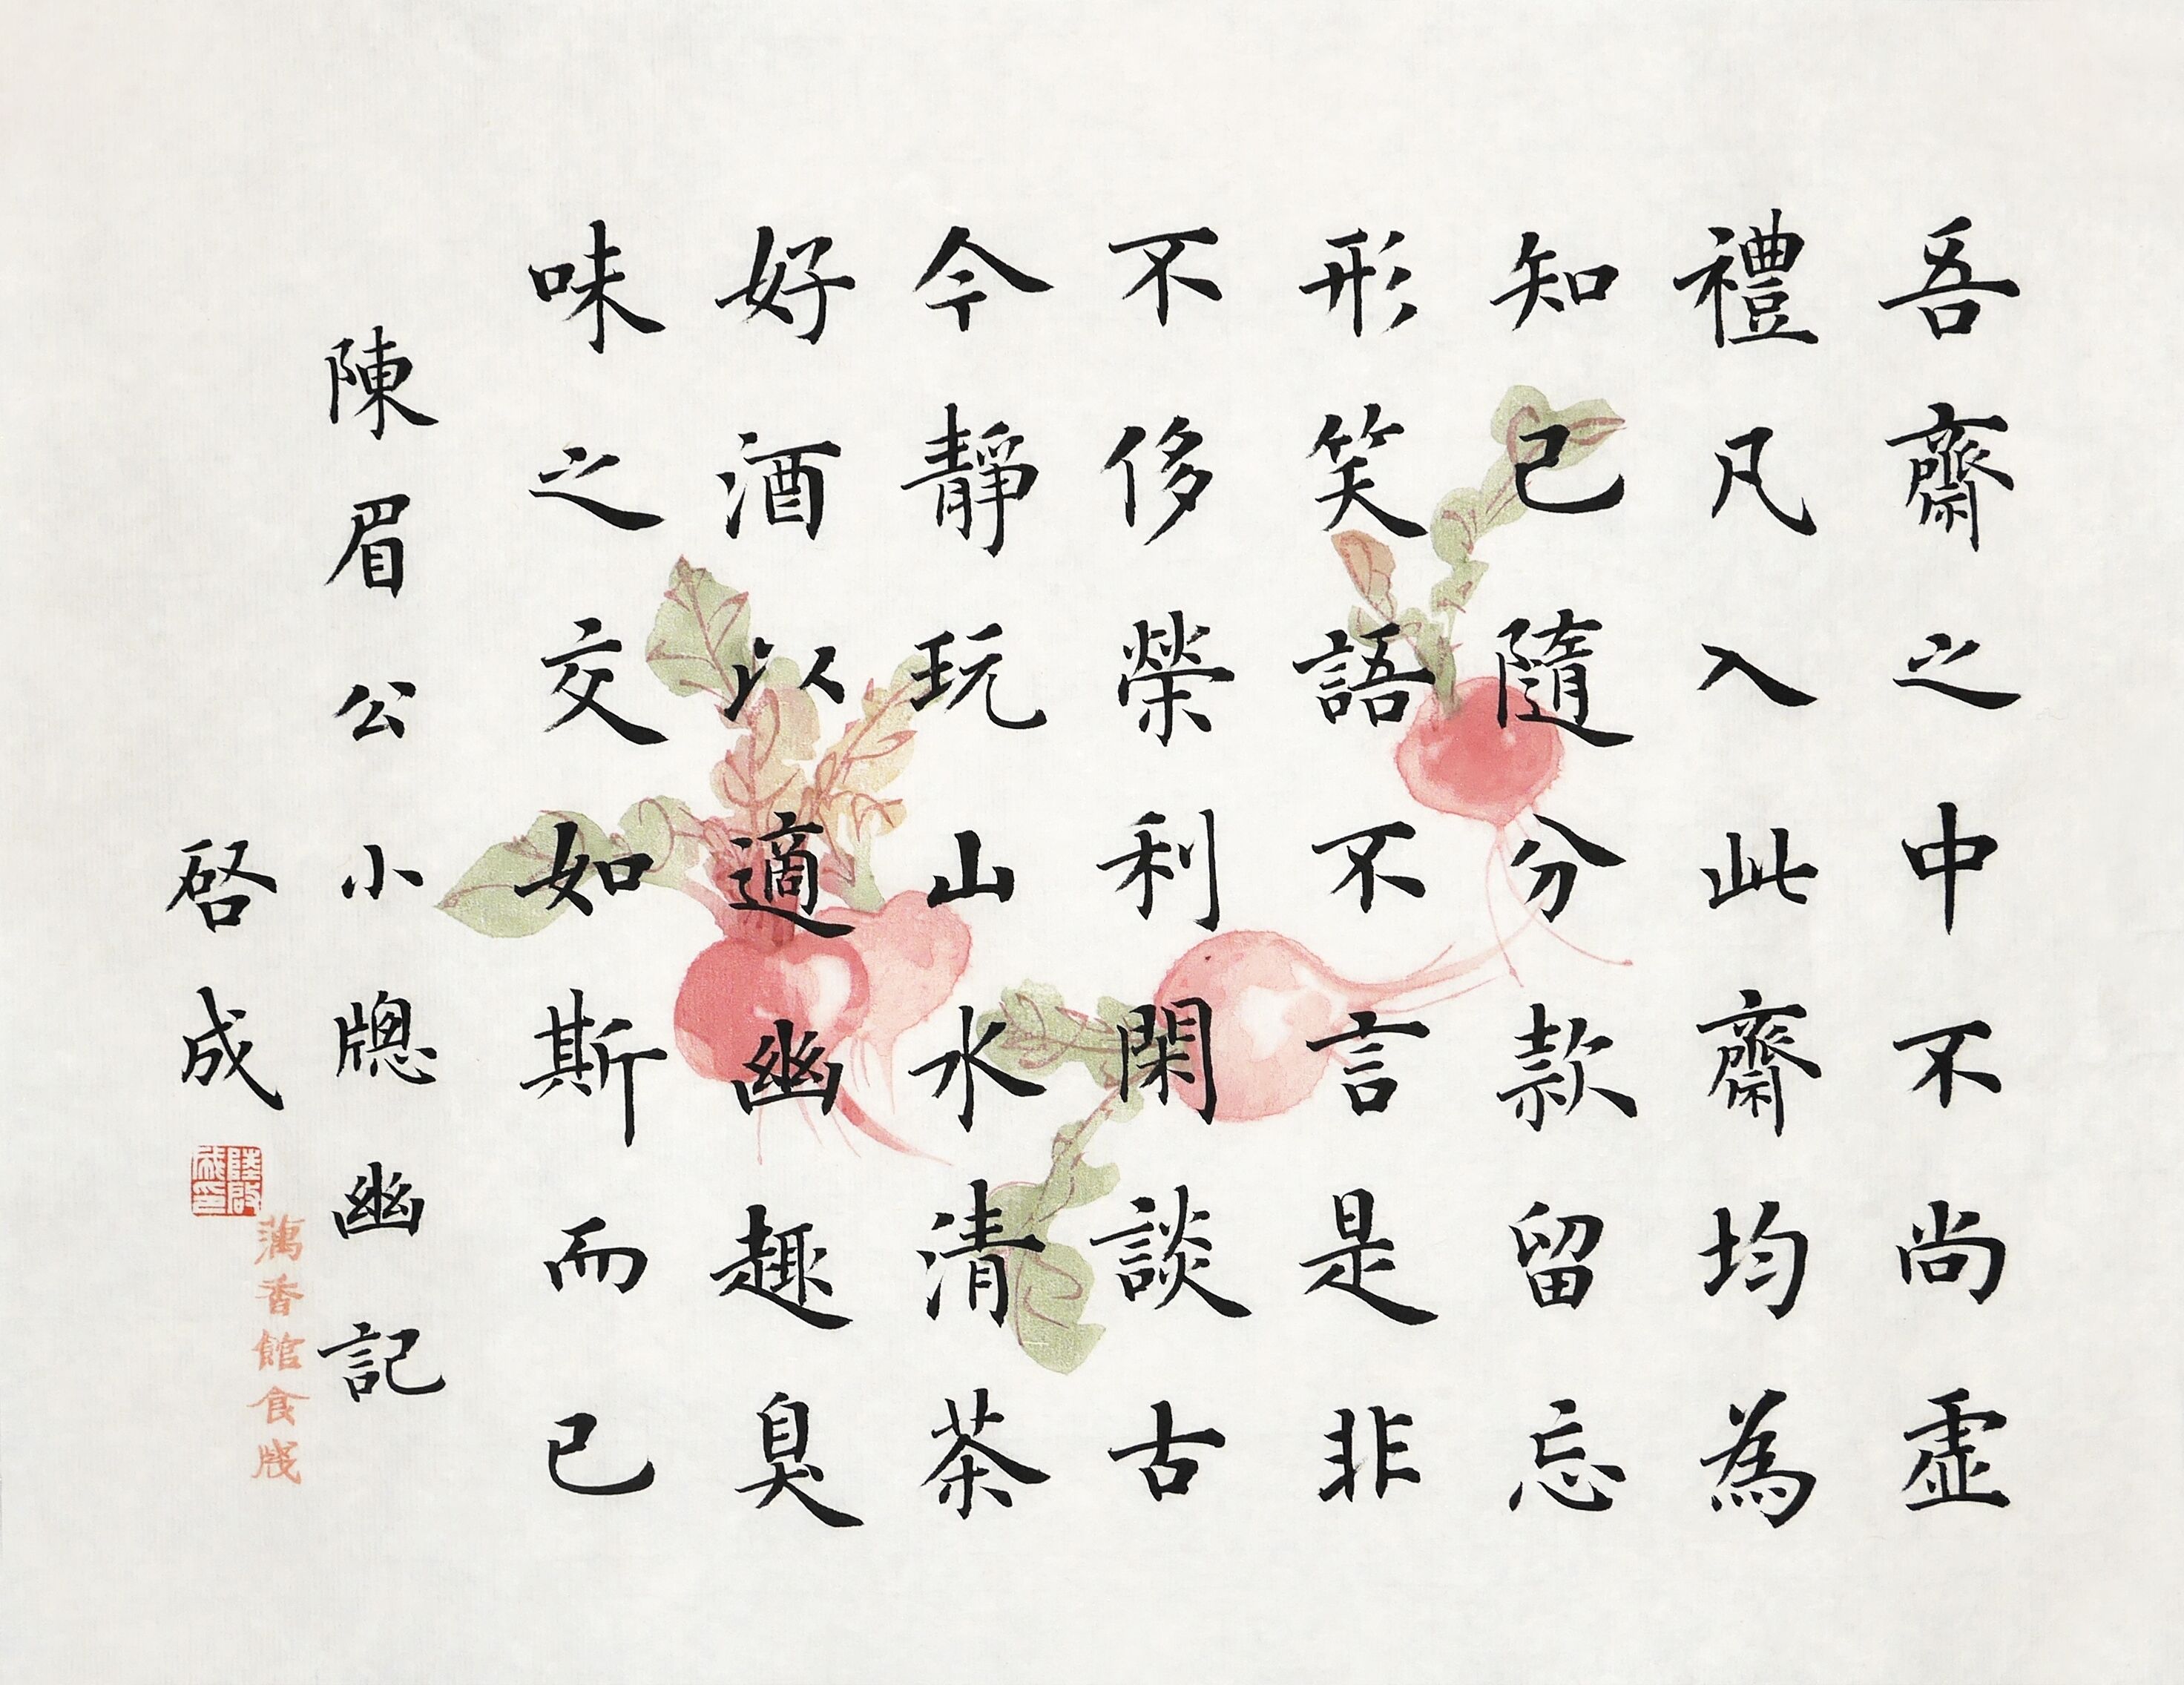 吾齋之中不尚虛
禮凡入此齋均為
知己隨分款留忘
形笑語不言是非
不侈榮利閑談古
今靜玩山水清茶
好酒以適幽趣臭
味之交如斯而已
陳眉公小牕幽記
啓成
陸啟成印
蕅香館食牋